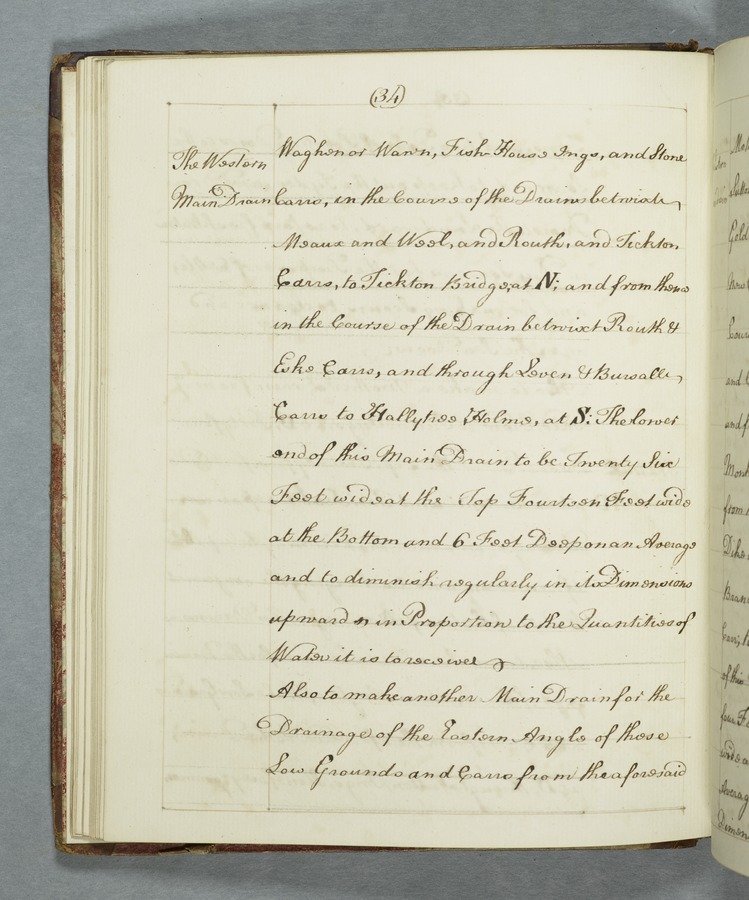 (34)
The Western
Main Drain
Waghen or Wawn, Fish-House Ings, and Stone
Carrs, in the Course of the Drains betwixt
Meaux and Weel, and Routh, and Tickton
Carrs, to Tickton Bridge, at N; and from thence
in the Course of the Drain betwixt Routh &
Eske Carrs, and through Leven & Burs­hall
Carrs to Hallytree Holme, at S: The lower
end of this Main Drain to be Twenty Six
Feet wide at the Top Fourteen Feet wide
at the Bottom and 6 Feet Deep on an Average
and to diminish regularly in its Dimensions
upwards in Proportion to the Quantities of
Water it is to receive
Also to make another Main Drain for the
Drainage of the Eastern Angle of these
Low Grounds and Carrs from the aforesaid